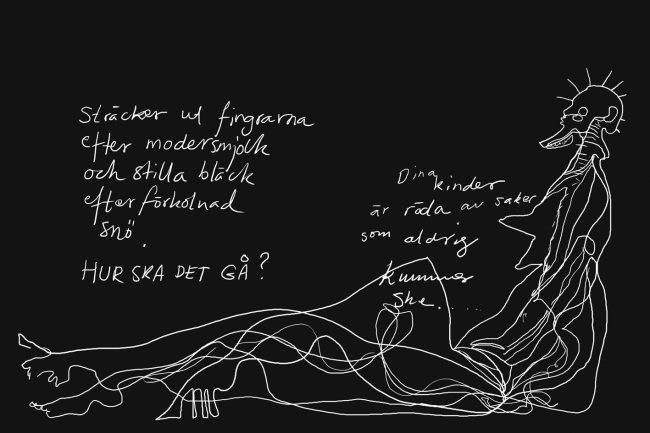 Sträcker ut fingrarna
efter modersmjölk
och stilla bläck
efter förkolnad
snö.
HUR SKA DET GÅ?
Dina
kinder
är röda av saker
som aldrig
kummer
ske. ...